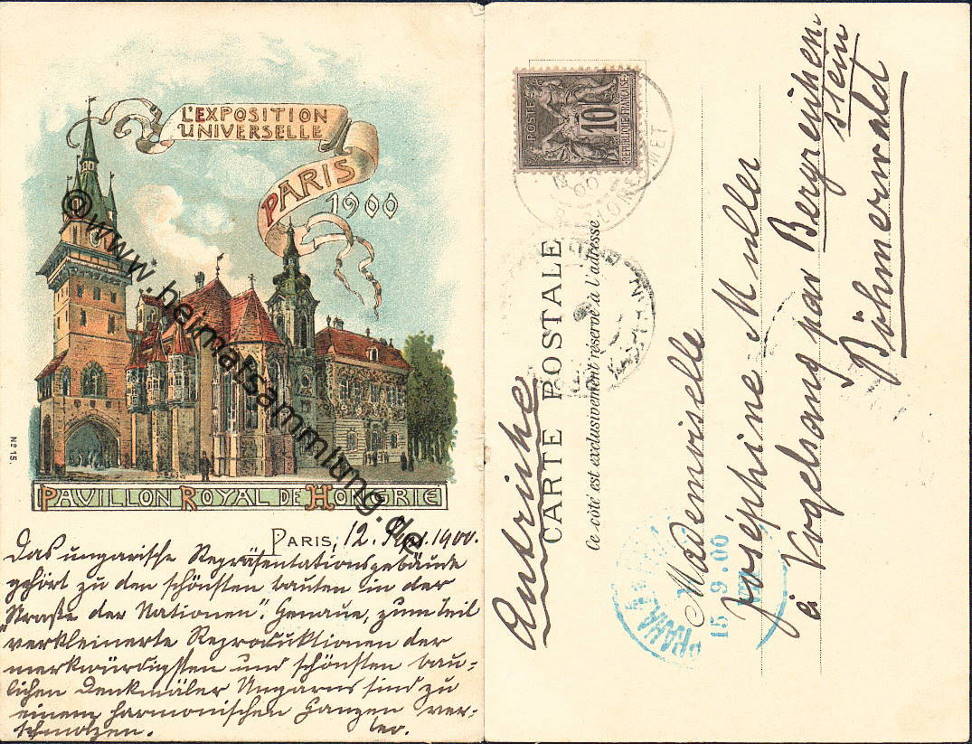 L'EXPOSITION
UNIVERSELLE
PARIS
1900
© www.heimatsammlung.de
No 15.
PAVILLON ROYAL DE HONGRIE
PARIS, 12. Sept. 1900.
Das ungarische Repräsentationsgebäude
gehört zu den schönsten bauten in der
"Straße der Nationen". Genaue, zum Teil
verkleinerte Reproduktionen der
merkwürdigsten und schönsten bau-
lichen Denkmäler Ungarns sind zu
einem harmonischen Ganzen ver-
schmolzen.
POSTES
10
REPUBLIQUE FRANÇAISE
CARTE POSTALE
Ce côté est exclusivement réservé à l'adresse
Autriche
Mademoiselle
Joséphine Muller
à Vogelsang par Bergreichen-
stein
Böhmerwald
PRAHA
15 9.00